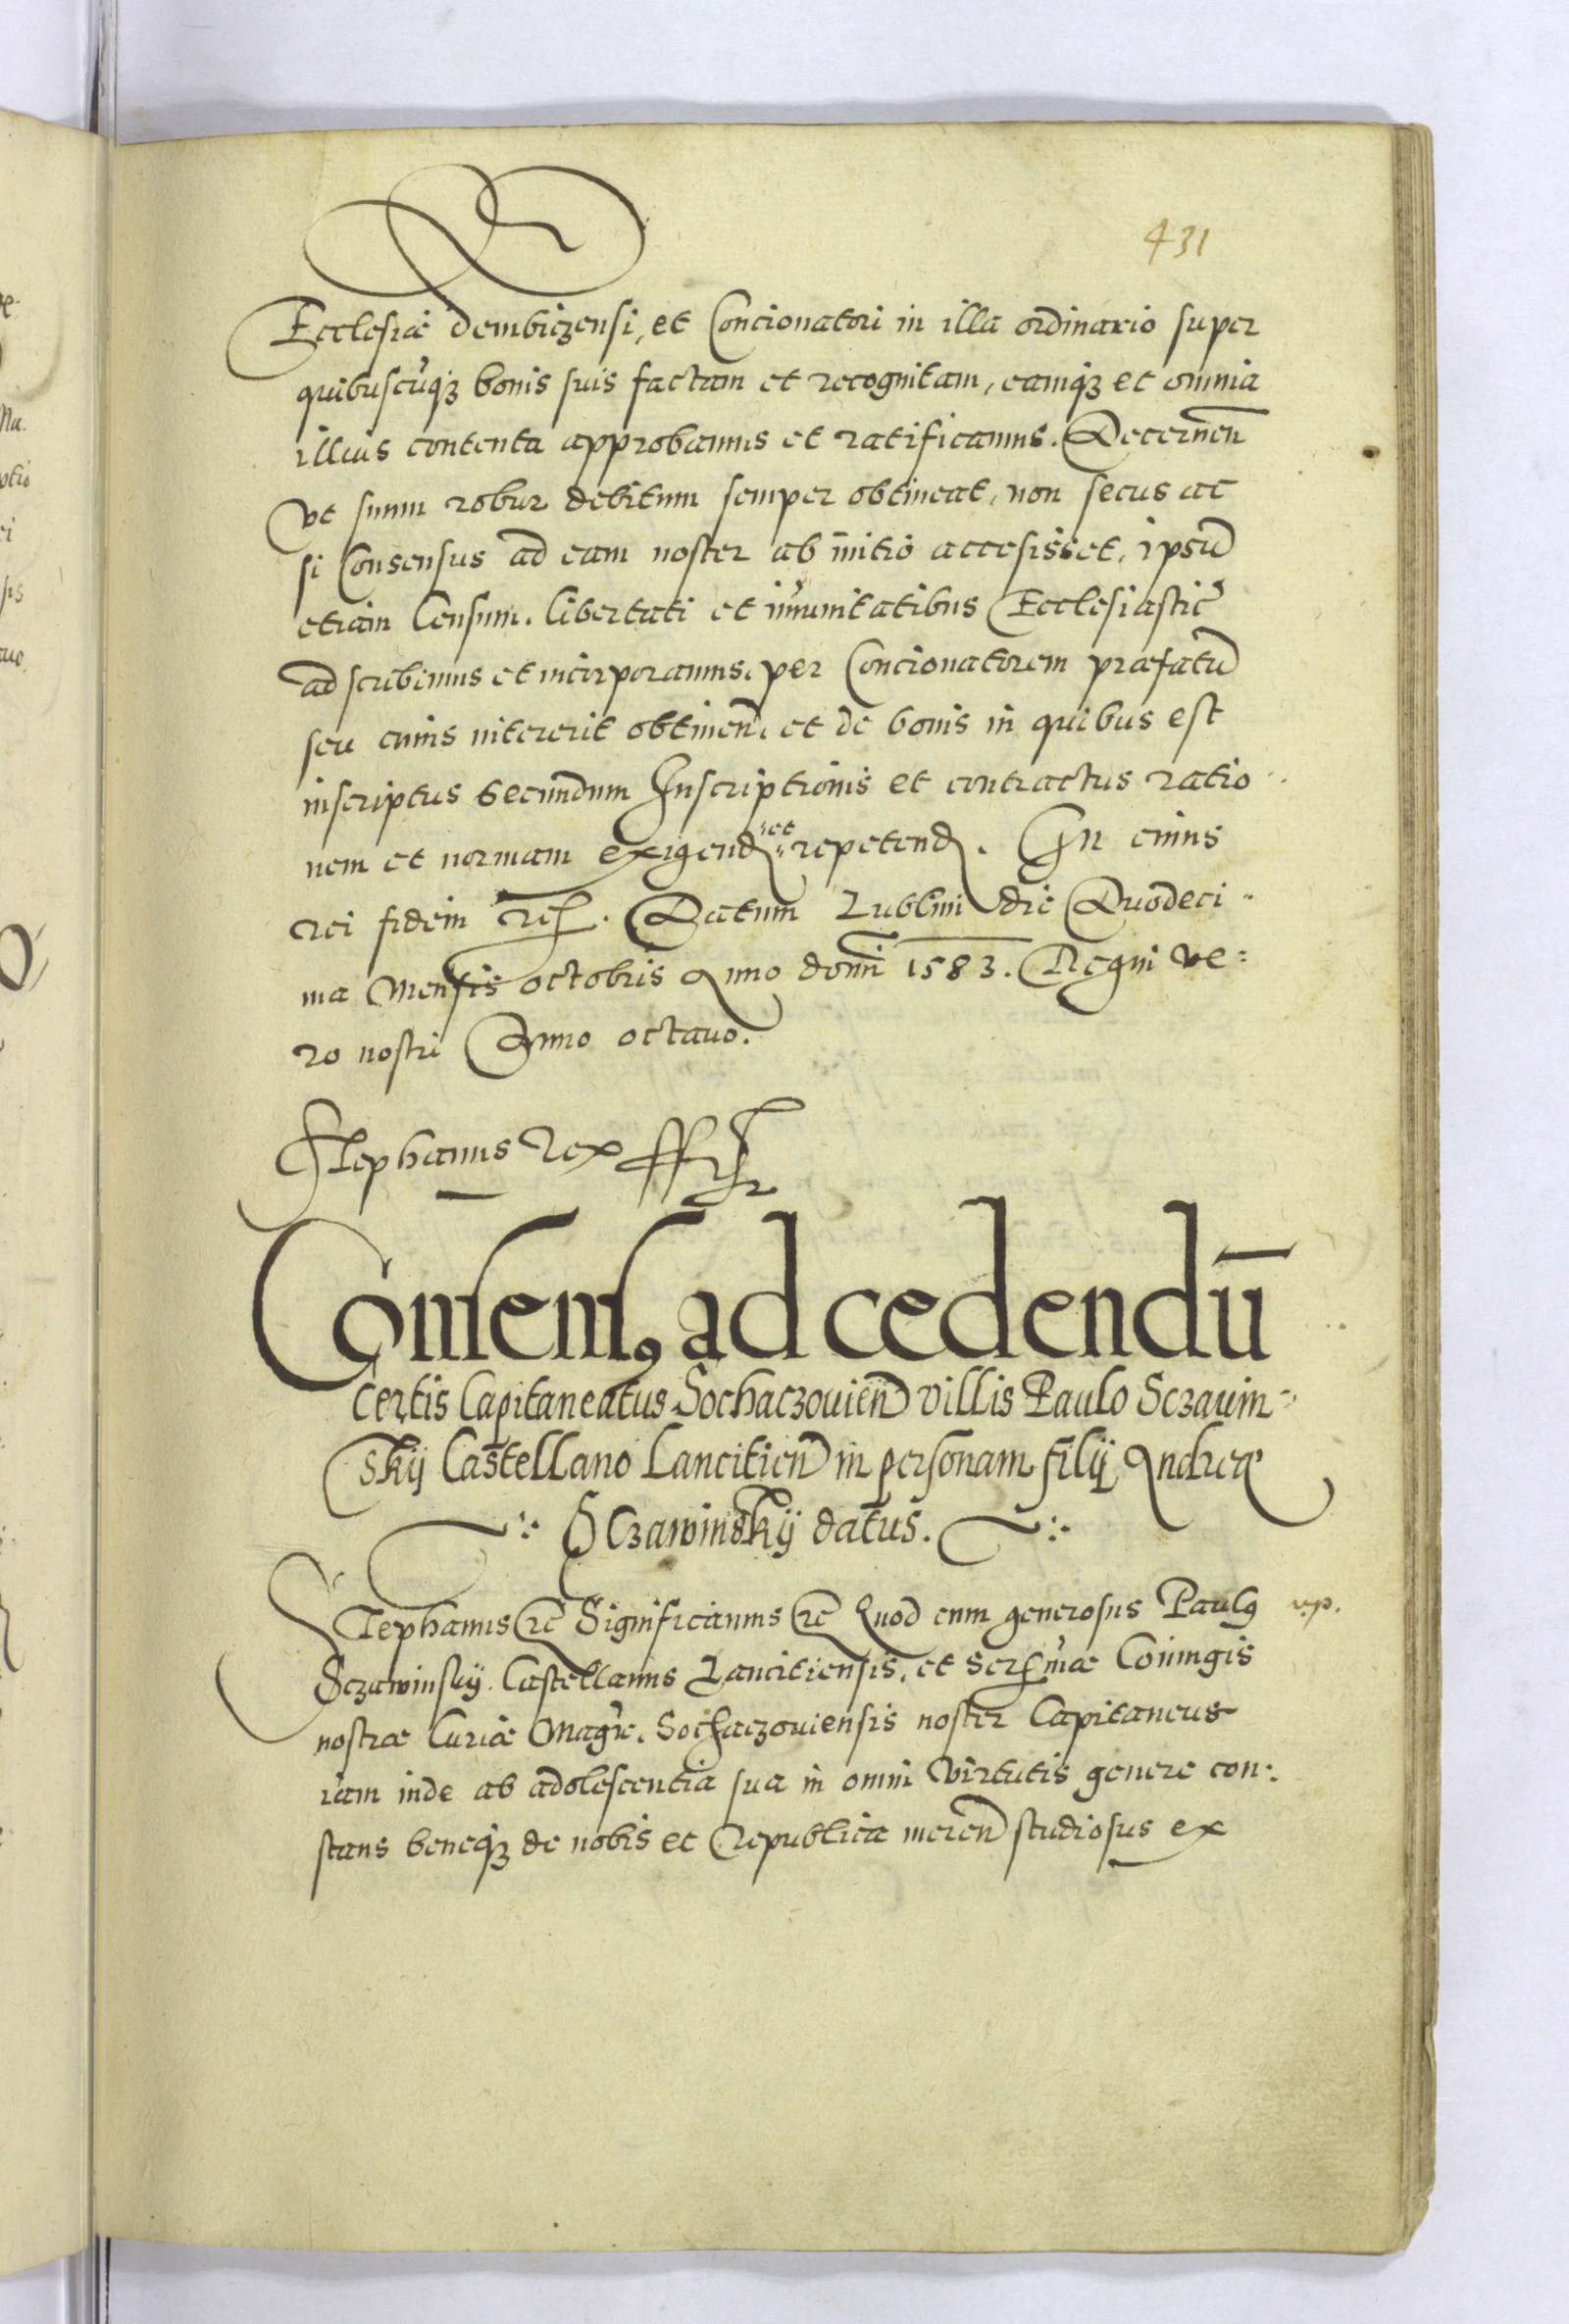 431
Ecclesiae dembiczensi, et Concionatori in illa ordinario super
quibuscūqȝ bonis suis factam et recognitam, eamqȝ et omnia
illius contenta approbamus et ratificamus. Decernen̄
vt suum robur debitum semper obtineat, non secus ac
si Consensus ad eam noster ab initio accesisset, ipsū
etiam Censum, libertati et im̄unitatibus Ecclesiastic̄
adscribimus et incorporamus, per Concionatorem praefatū
seu cuius intererit obtinend, et de bonis in quibus est
inscriptus secundum Inscriptionis et contractus ratio
nem et normam exigend et repetend. In cuius
rei fidem etc. Datum Lublini die Duodeci
ma Mensis octobris Anno domī 1583. Regni ve:
ro nostri Anno octauo.
Stephanus Rex
Consensꝯ ad cedendū
certis Capitaneatus Sochaczouien̄ villis Paulo Sczauin
skij Castellano Lancitien̄ in personam filij Andreae
Sczawinskij datus.
Stephanus etc Significamus etc Quod cum generosus Paulꝯ
Sczawinskij. Castellanus Lanciciensis, et Serm̄ae Coniugis
nostrae Curiae Magr̄. Sochaczouiensis noster Capitaneus
iam inde ab adolescentia sua in omni virtutis genere con:
stans beneqȝ de nobis et Republica meren̄ studiosus ex